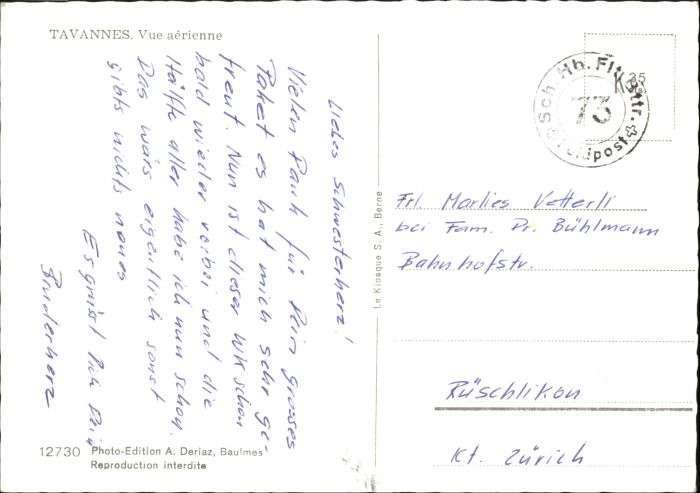 TAVANNES. Vue aérienne
Liebes Schwesterherz!
Vielen Dank für Dein grosses
Paket es hat mich sehr ge-
freut. Nun ist dieser WK schon
bald wieder vorbei und die
Hälfte aller habe ich nun schon.
Das wärs eigentlich sonst
gibts nichts neues
Es grüsst Dich Dein
Bruderherz
12730 Photo-Edition A. Deriaz, Baulmes
Reproduction interdite
Le Kiosque S. A., Berne
Sch. Hb. Flt. Bttr.
73
Feldpost
Frl. Marlies Vetterli
bei Fam. Dr. Bühlmann
Bahnhofstr.
Rüschlikon
Kt. Zürich